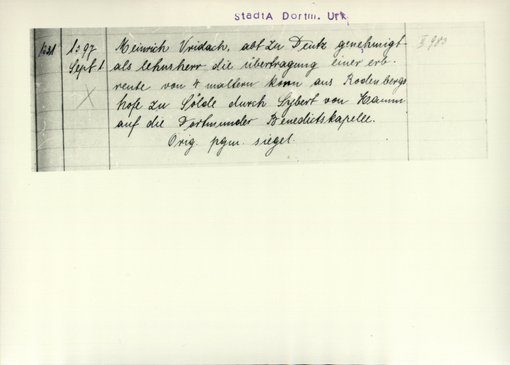 StadtA Dortm. Urk.
1331 1397 Heinrich Vridach, abt zu Deutz genehmigt II 980
Sept 1 als lehnsherr die übertragung einer erb-
X rente von 4 maltern korn aus Rodenbergs
hofe zu Sölde durch Sybert von Hamm
auf die Dortmunder Benedictskapelle.
Orig. pgm. siegel.